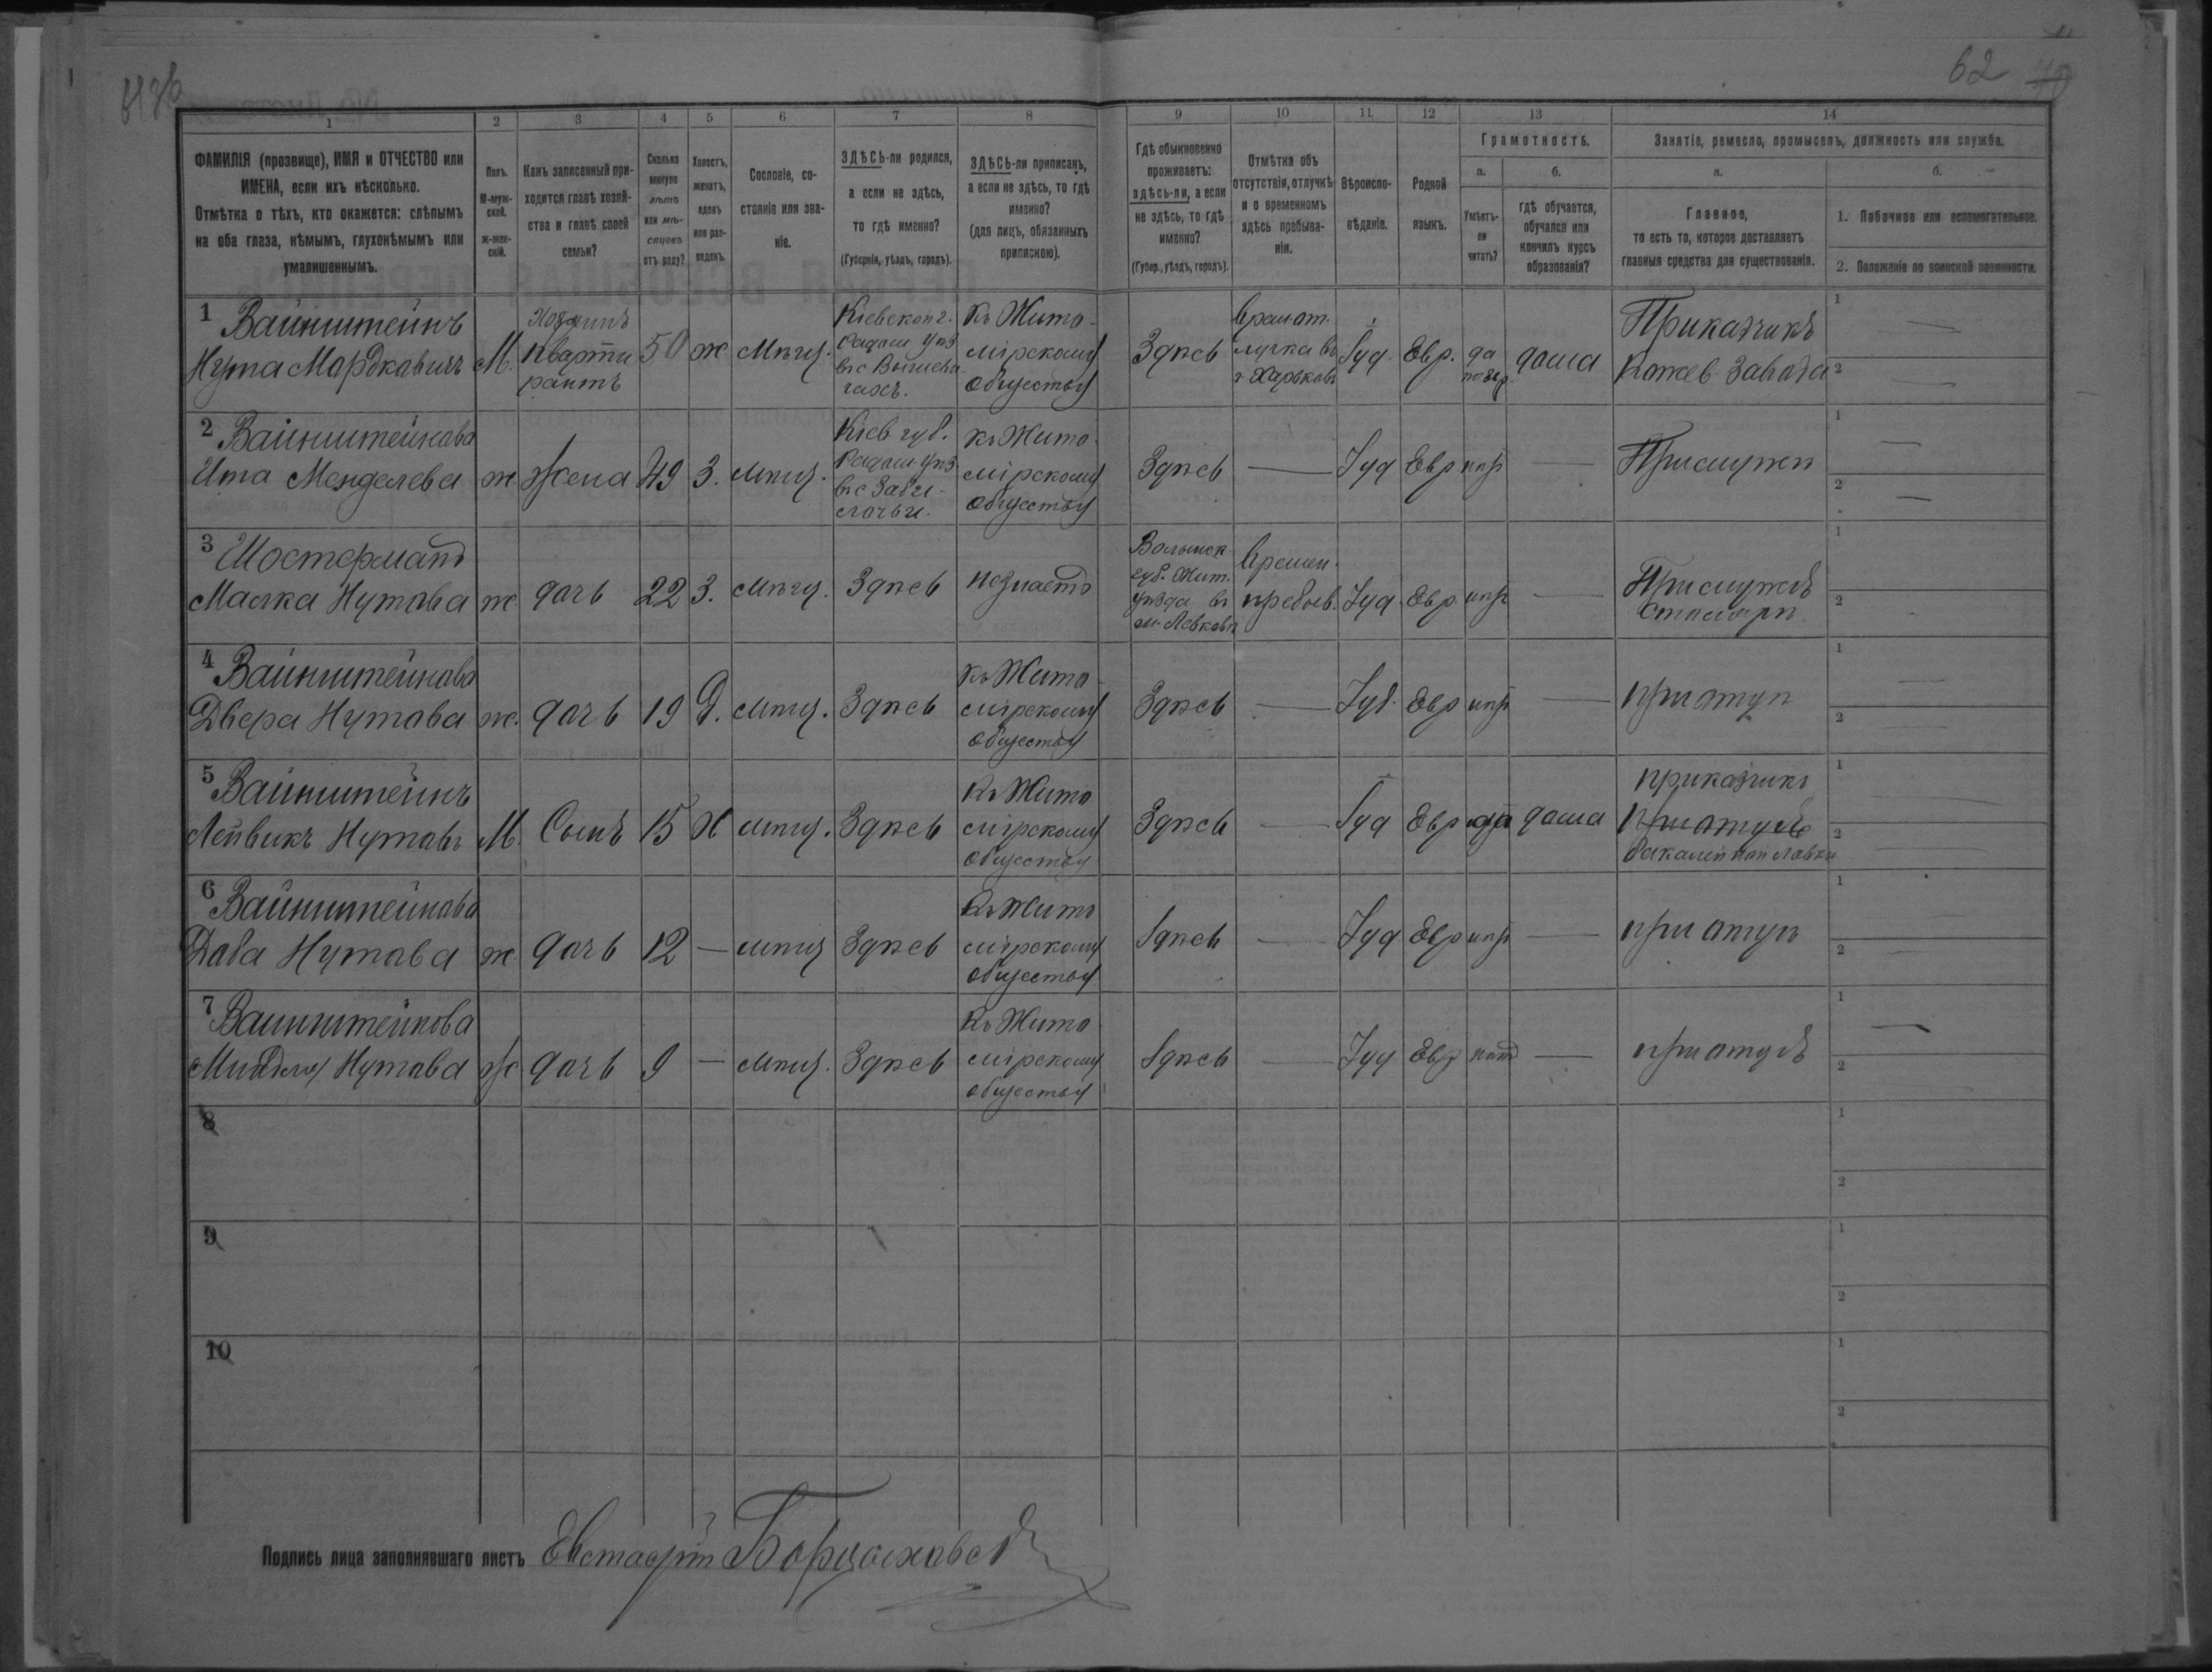 62
1 2 3 4 5 6 7 8 9 10 11 12 13 14
ФАМИЛІЯ (прозвище), ИМЯ и ОТЧЕСТВО или
ИМЕНА, если ихъ нѣсколько.
Отмѣтка о тѣхъ, кто окажется: слѣпымъ
на оба глаза, нѣмымъ, глухонѣмымъ или
умалишеннымъ.
Полъ.
М-муж-
ской.
ж-жен-
скій.
Какъ записанный при-
ходится главѣ хозяй-
ства и главѣ своей
семьи?
Сколько
минуло
лѣтъ
или мѣ-
сяцевъ
отъ роду?
Холостъ,
женатъ,
вдовъ
или раз-
веденъ.
Сословіе, со-
стояніе или зва-
ніе.
ЗДѢСЬ-ли родился,
а если не здѣсь,
то гдѣ именно?
(Губернія, уѣздъ, городъ).
ЗДѢСЬ-ли приписанъ,
а если не здѣсь, то гдѣ
именно?
(для лицъ, обязанныхъ
припискою).
Гдѣ обыкновенно
проживаетъ:
здѣсь-ли, а если
не здѣсь, то гдѣ
именно?
(Губер., уѣздъ, городъ).
Отмѣтка объ
отсутствіи, отлучкѣ
и о временномъ
здѣсь пребыва-
ніи.
Вѣроиспо-
вѣданіе.
Родной
языкъ.
Грамотность.
а.
Умѣетъ-
ли
читать?
б.
гдѣ обучается,
обучался или
кончилъ курсъ
образованія?
Занятіе, ремесло, промыселъ, должность или служба.
а.
Главное,
то есть то, которое доставляетъ
главныя средства для существованія.
б.
1. Побочное или вспомогательное.
2. Положеніе по воинской повинности.
1 Вайнштейнъ
Нута Мордкавичъ
М.
Хозяинъ
Кварти
рантъ
50
ж
Мѣщ.
Кіевской г.
Радом уѣз
въ с
Къ Жито-
мірскому
обществу
Здѣсь
Врем от.
лучка въ
г Харьковъ
Іуд.
Евр.
да
по евр.
дома
Приказчикъ
Кожев Завода
1
2
2 Вайнштейнава
Ита Менделева
ж
Жена
49
З.
мѣщ.
Кіев губ.
Радом уѣз
въ с
къ Жито-
мірскому
обществу
Здѣсь
Іуд
Евр
нѣт
При мужѣ
1
2
3 Шостерманъ
Малка Нутава
ж
дочь
22
З.
мѣщ.
Здѣсь
незнаетъ
Волынск
губ. Жит.
уѣзда въ
м. Левковѣ
Времен.
пребыв.
Іуд.
Евр.
нѣт
При мужѣ
столяръ
1
2
4 Вайнштейнава
Двера Нутава
ж.
дочь
19
Д.
мѣщ.
Здѣсь
къ Жито-
мірскому
обществу
Здѣсь
Іуд.
Евр
нѣт
при отцѣ
1
2
5 Вайнштейнъ
Лейвикъ Нутавъ
М.
Сынъ
15
Х
мѣщ.
Здѣсь
Къ Жито
мірскому
обществу
Здѣсь
Іуд
Евр
да
дома
приказчикъ
При отцѣ
бакалейной лавки
1
2
6 Вайнштейнава
Даба Нутава
ж
дочь
12
мѣщ
Здѣсь
Къ Жито
мірскому
обществу
Здѣсь
Іуд
Евр
нѣт
при отцѣ
1
2
7 Вайнштейнова
Миндля Нутава
ж
дочь
9
мѣщ.
Здѣсь
Къ Жито
мірскому
обществу
Здѣсь
Іуд
Евр
нѣт
при отцѣ
1
2
8
1
2
9
1
2
10
1
2
Подпись лица заполнявшаго листъ